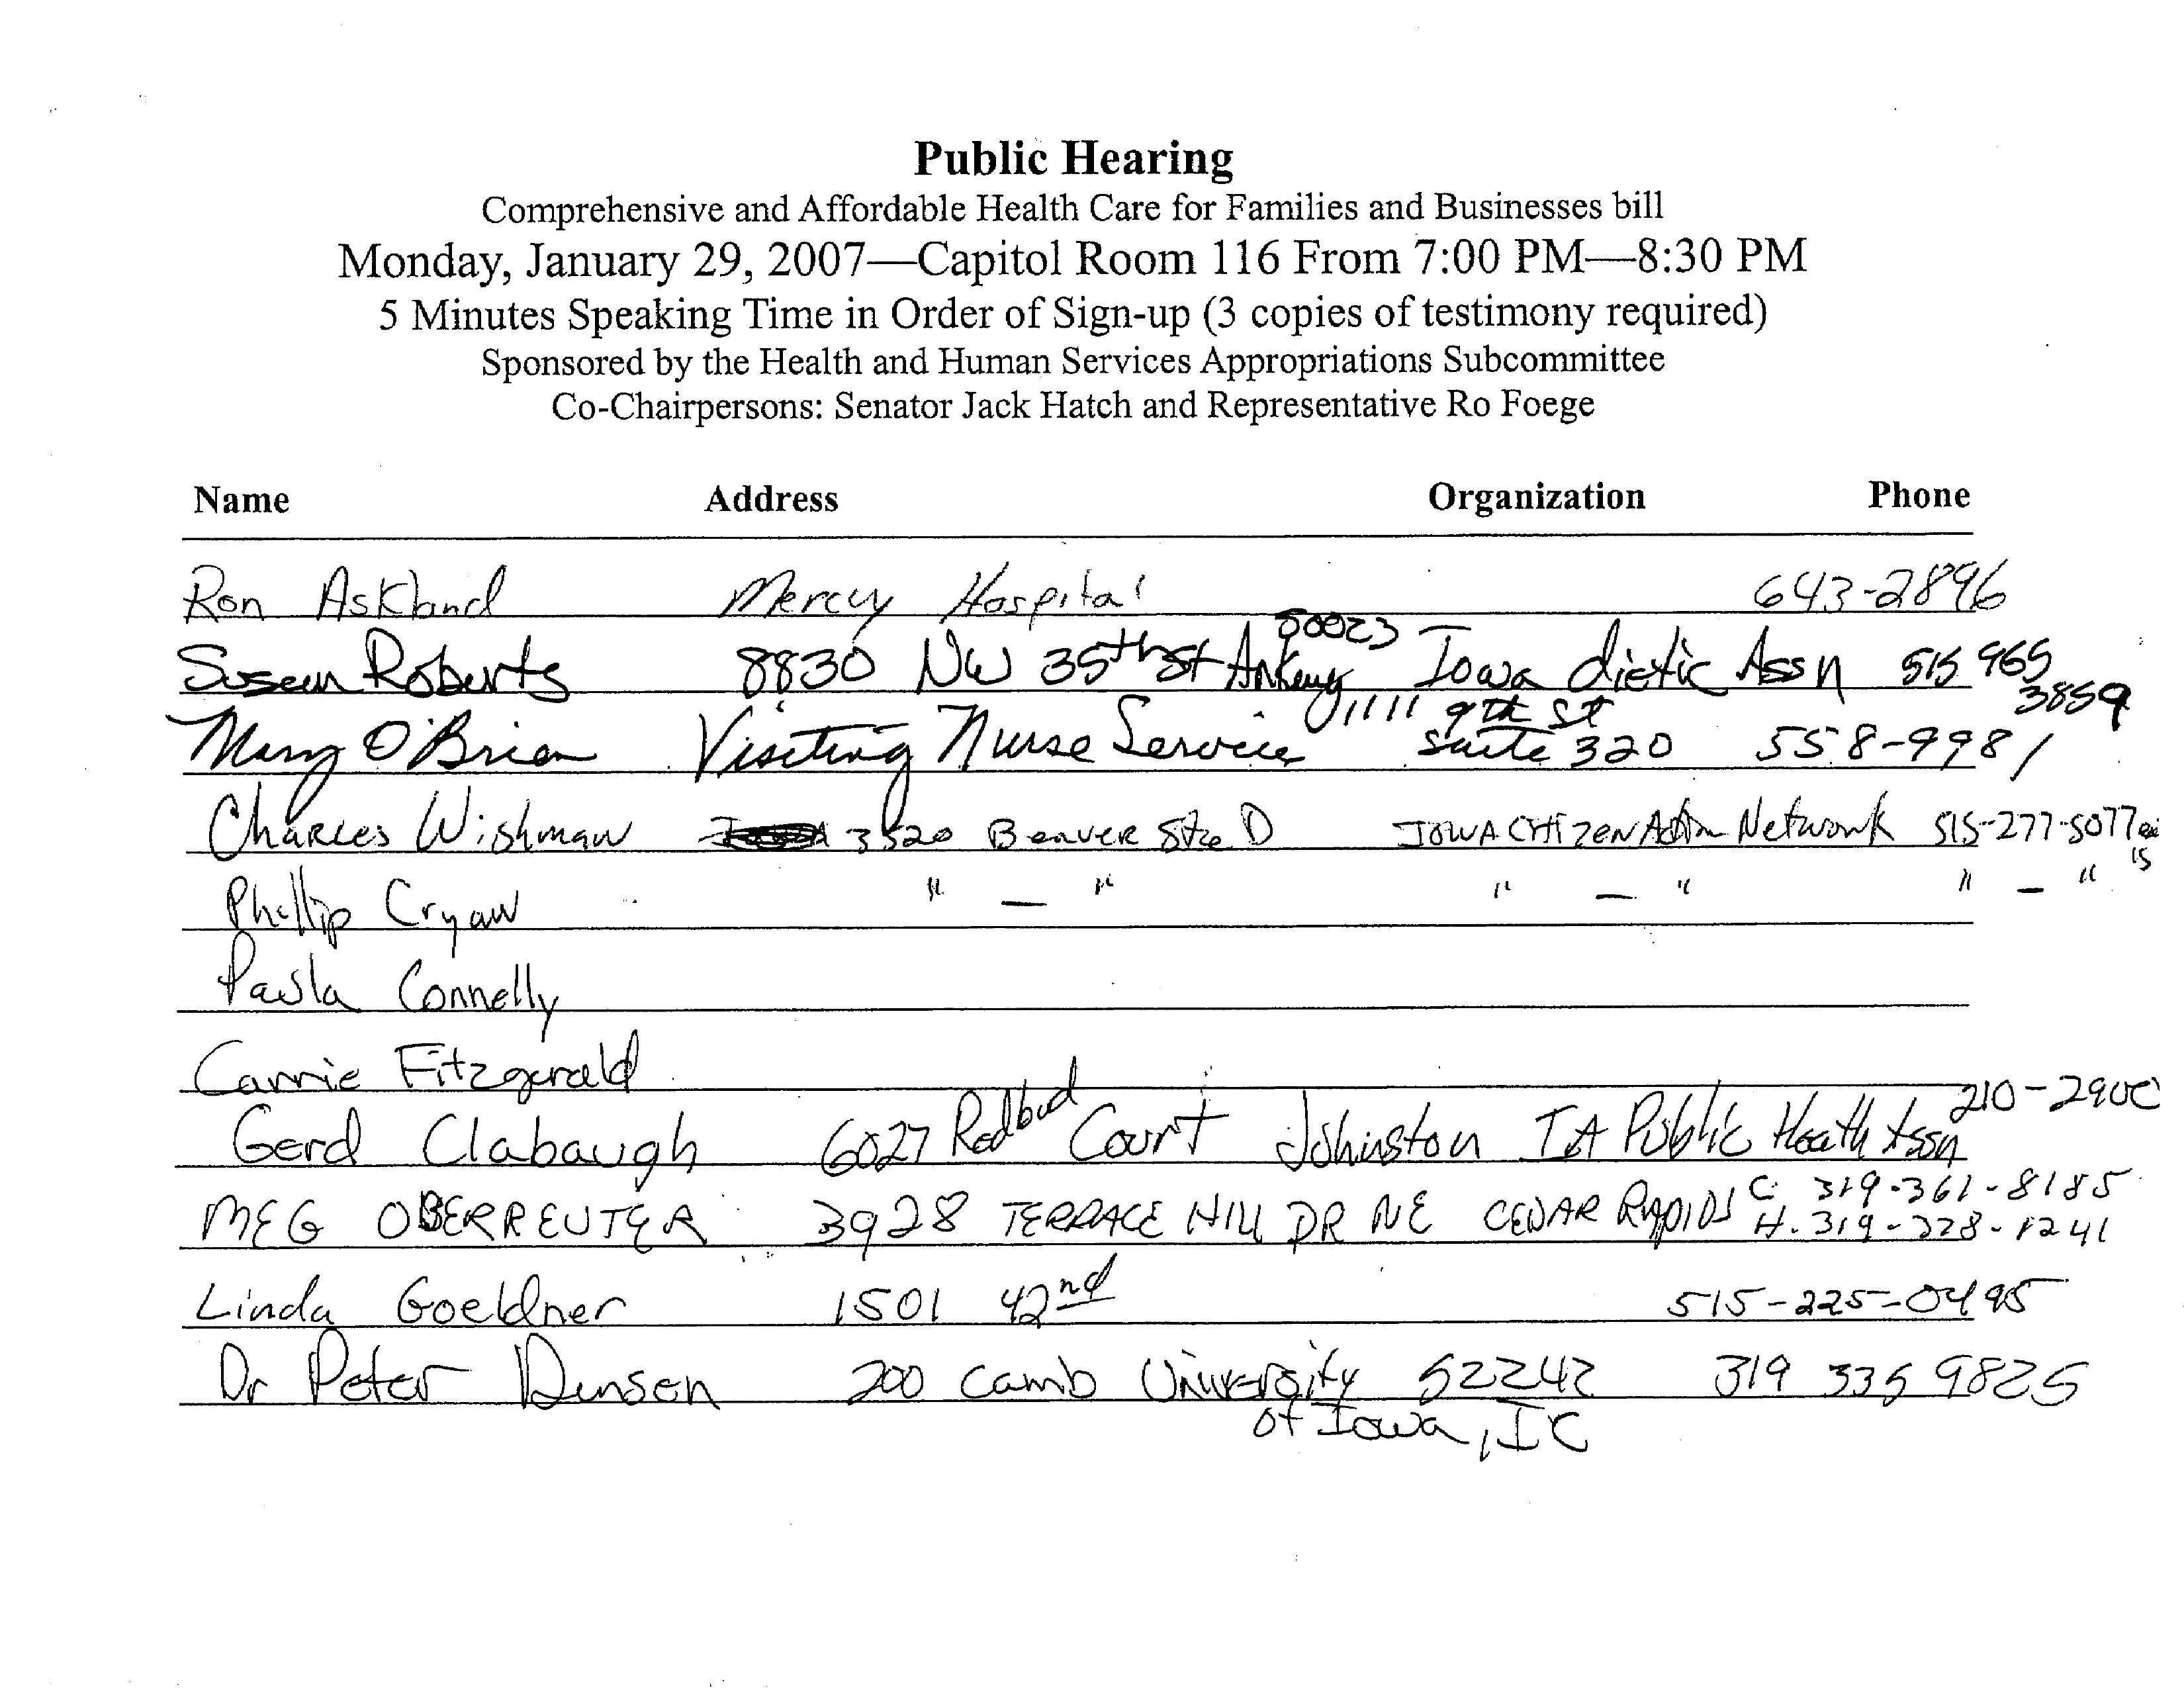 Public Hearing
Comprehensive and Affordable Health Care for Families and Businesses bill
Monday, January 29, 2007—Capitol Room 116 From 7:00 PM—8:30 PM
5 Minutes Speaking Time in Order of Sign-up (3 copies of testimony required)
Sponsored by the Health and Human Services Appropriations Subcommittee
Co-Chairpersons: Senator Jack Hatch and Representative Ro Foege
Name Address Organization Phone
Ron Askland Mercy Hospital 643-2896
Susan Roberts 8830 NW 35th St Ankeny 50023 Iowa dietic Assn 515 965 3859
Mary O'Brien Visiting Nurse Service 1111 9th St Suite 320 558-9981
Charles Wishman 3520 Beaver Ste D IOWA CITIZEN Action Network 515-277-5077 15
Phillip Cryan " — " " — " " — "
Paula Connelly
Carrie Fitzgerald
Gerd Clabaugh 6027 Redbud Court Johnston IA Public Health Assn 210-2900
MEG OBERREUTER 3928 TERRACE HILL DR NE CEDAR RAPIDS C. 319-361-8185
H. 319-378-1241
Linda Goeldner 1501 42nd 515-225-0495
Dr Peter Densen 200 Camb University 52242 319 335 9825
of Iowa, IC